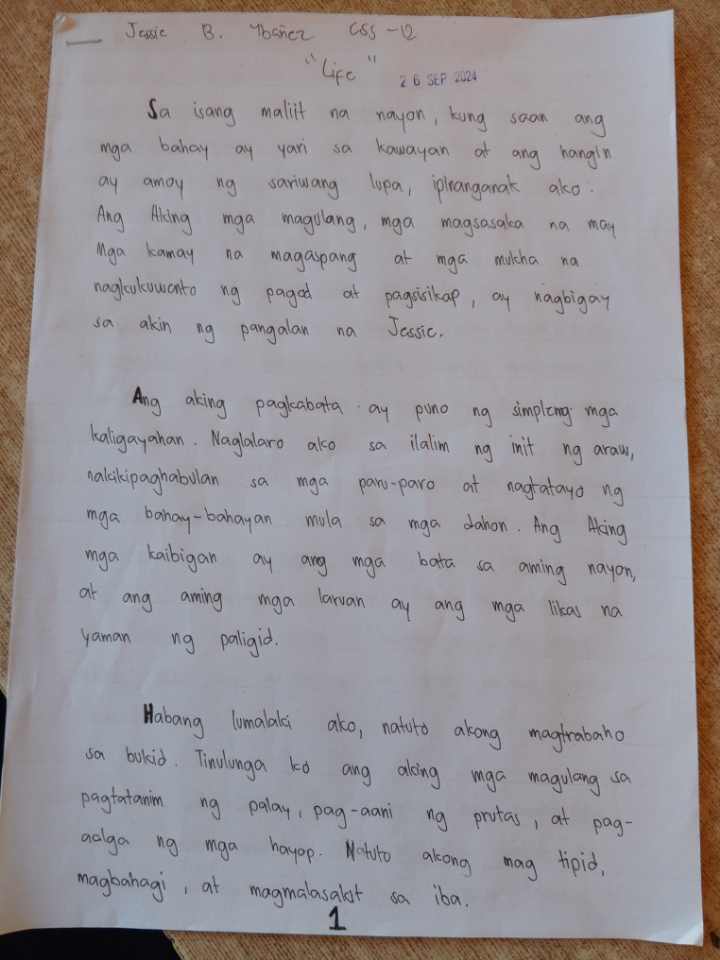 Jessie B. Ybañez CSS-12
"Life"
26 SEP 2024
Sa isang maliit na nayon, kung saan ang
mga bahay ay yari sa kawayan at ang hangin
ay amoy ng sariwang lupa, ipinanganak ako.
Ang Aking mga magulang, mga magsasaka na may
Mga kamay na magaspang at mga mukha na
nagkukuwento ng pagod at pagsisikap, ay nagbigay
sa akin ng pangalan na Jessie.
Ang aking pagkabata ay puno ng simpleng mga
kaligayahan. Naglalaro ako sa ilalim ng init ng araw,
nakikipaghabulan sa mga paru-paro at nagtatayo ng
mga bahay-bahayan mula sa mga dahon. Ang Aking
mga kaibigan ay ang mga bata sa aming nayon,
at ang aming mga laruan ay ang mga likas na
yaman ng paligid.
Habang lumalaki ako, natuto akong magtrabaho
sa bukid. Tinulunga ko ang aking mga magulang sa
pagtatanim ng palay, pag-aani ng prutas, at pag-
aalga ng mga hayop. Natuto akong mag tipid,
magbahagi, at magmalasakit sa iba.
1